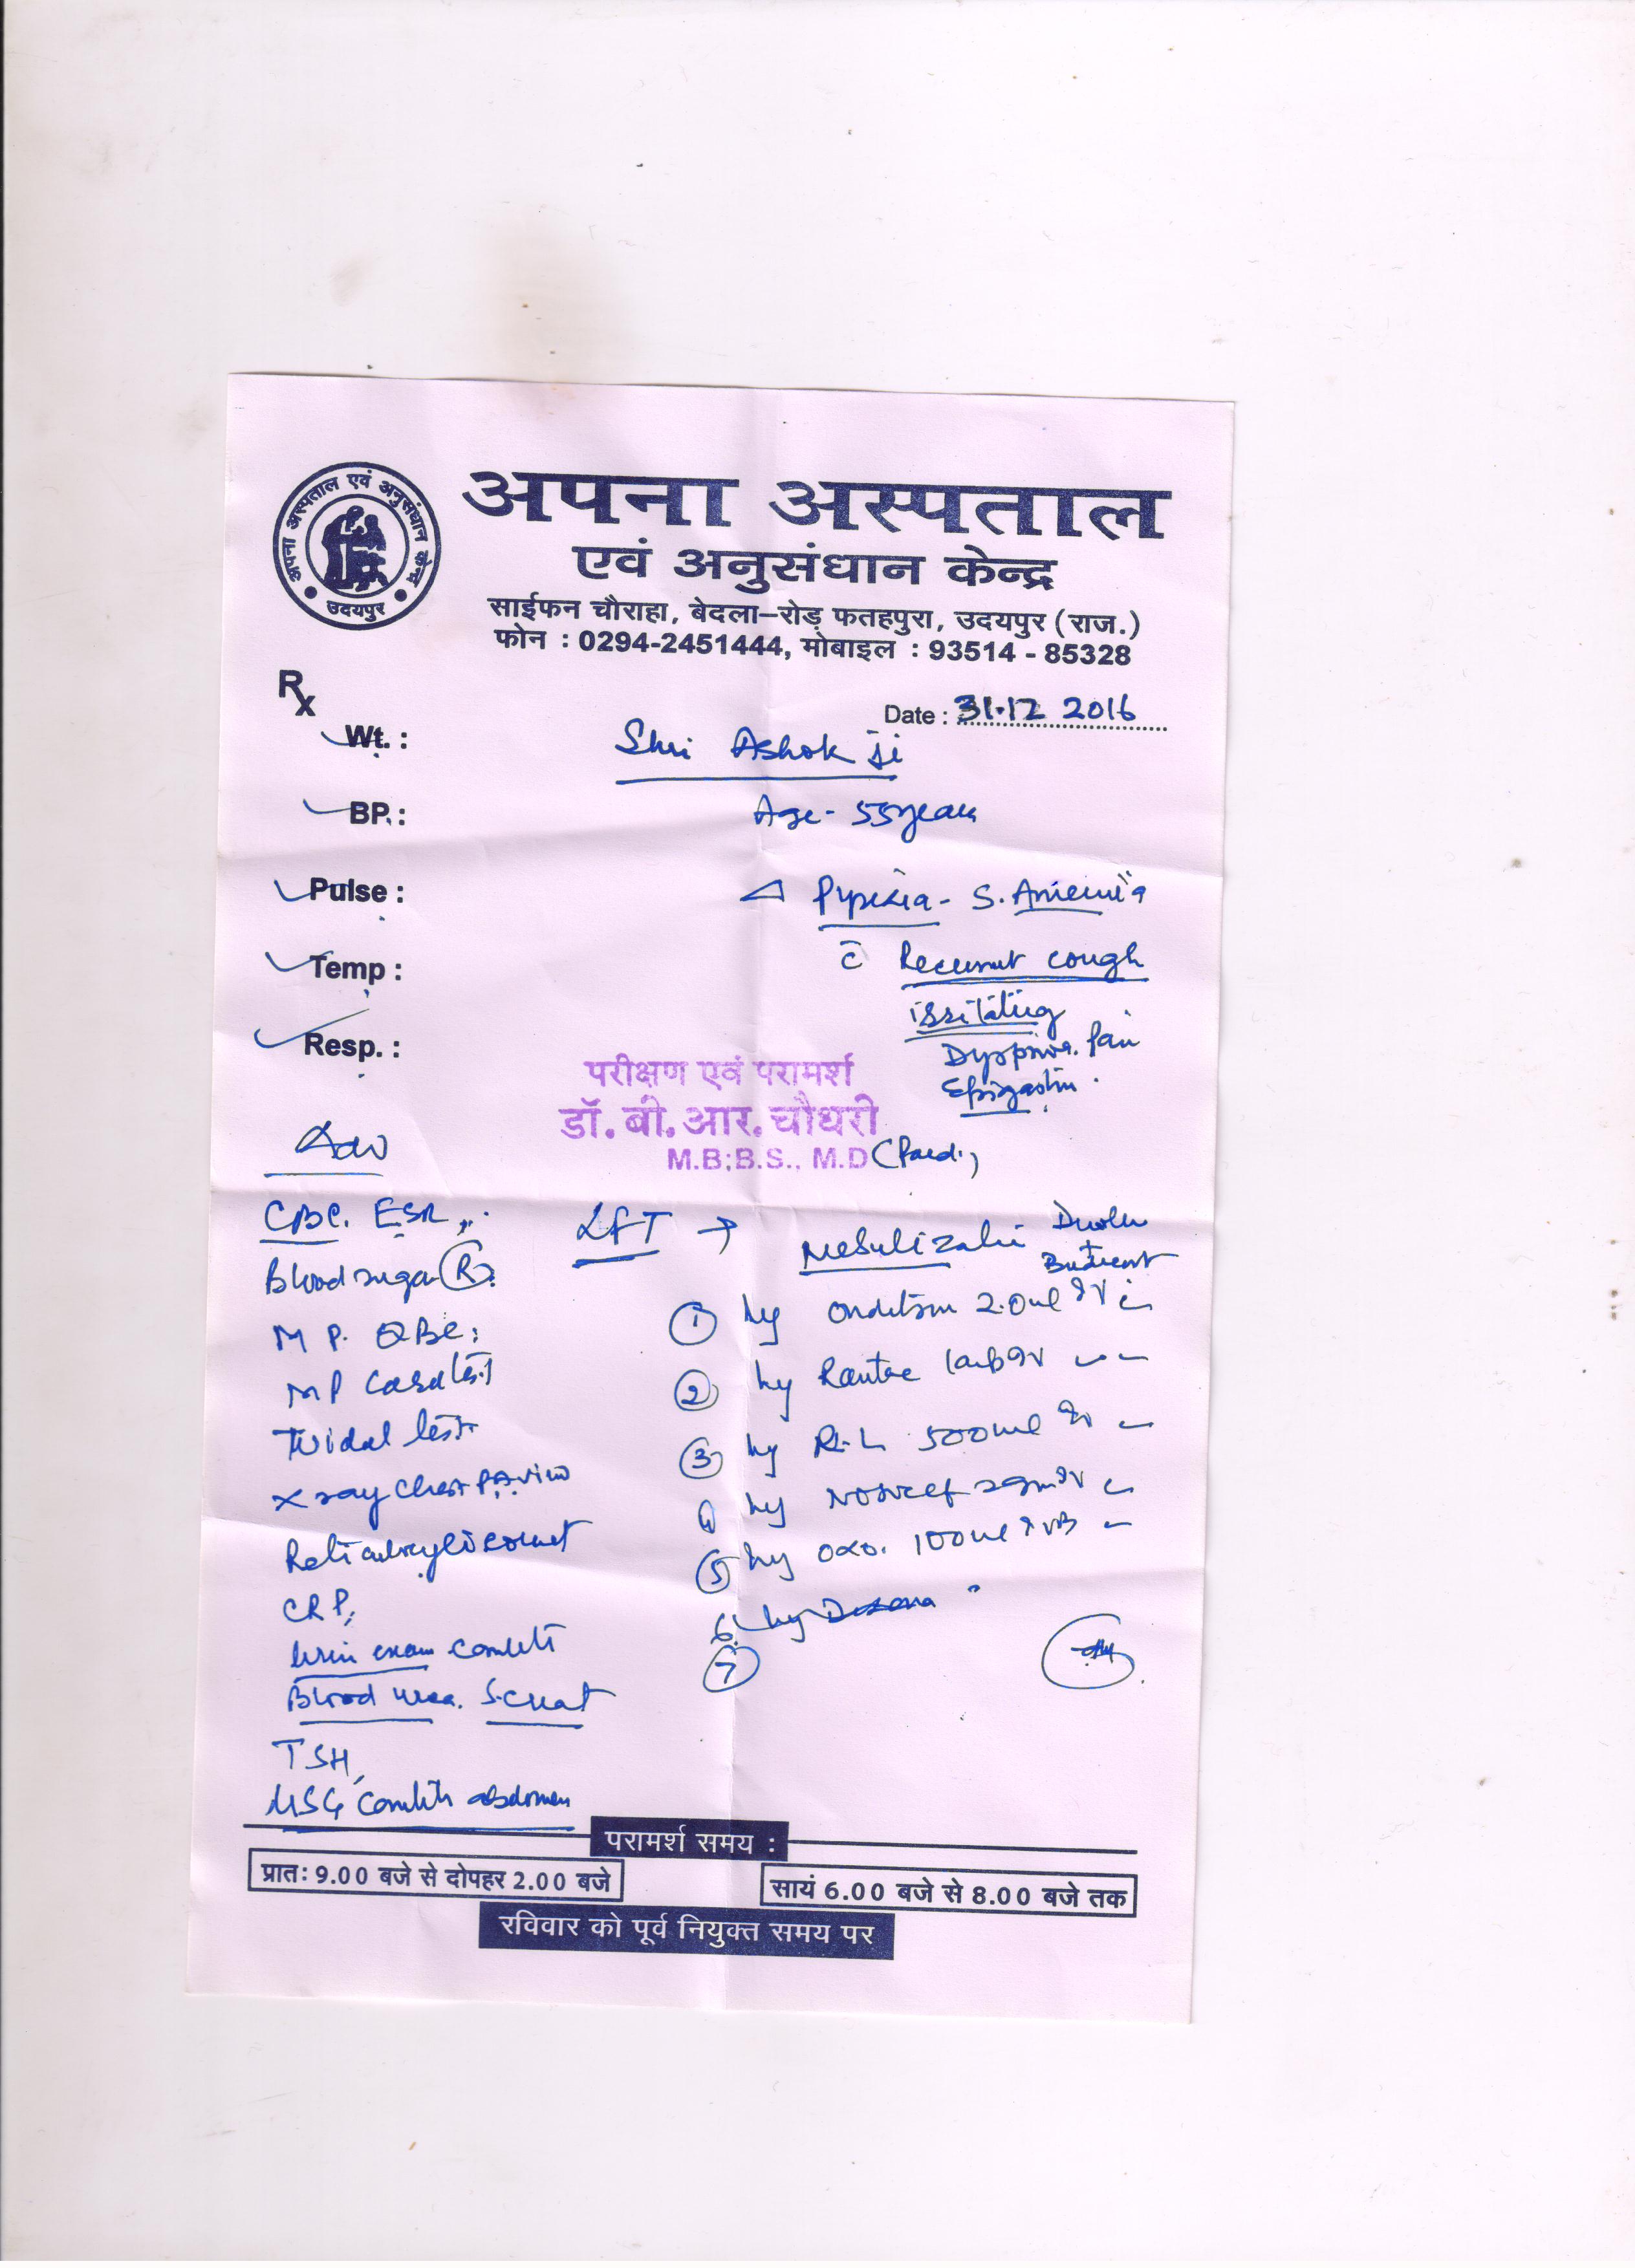 अपना अस्पताल एवं अनुसंधान केन्द्र
उदयपुर
अपना अस्पताल
एवं अनुसंधान केन्द्र
साईफन चौराहा, बेदला-रोड़ फतहपुरा, उदयपुर (राज.)
फोन : 0294-2451444, मोबाइल : 93514 - 85328
Rx
Date : 31.12 2016
Wt. :
Shri Ashok ji
BP. :
Age - 55 years
Pulse :
Pyrexia - S. Aniemia
Temp :
c̄ Recurrent cough
irritating
Resp. :
Dyspnoea. Pain
Epigastrium.
परीक्षण एवं परामर्श
डॉ. बी. आर. चौधरी
M.B;B.S., M.D (Paed.)
Adv
CBC. ESR
LFT →
Nebulization Duolin
+
Blood sugar (R)
M P. QBC
MP Card test
Widal test
X ray Chest PA view
Reticulocyte count
CRP,
Urin exam complete
Blood urea. S. creat
TSH,
USG complete abdomen
① Inj 2.0ml IV
② Inj Rantac 1amp IV
③ Inj R-L 500ml IV
4 Inj 2gm IV
⑤ Inj 100ml
6. Inj
⑦
परामर्श समय :
प्रातः 9.00 बजे से दोपहर 2.00 बजे
सायं 6.00 बजे से 8.00 बजे तक
रविवार को पूर्व नियुक्त समय पर